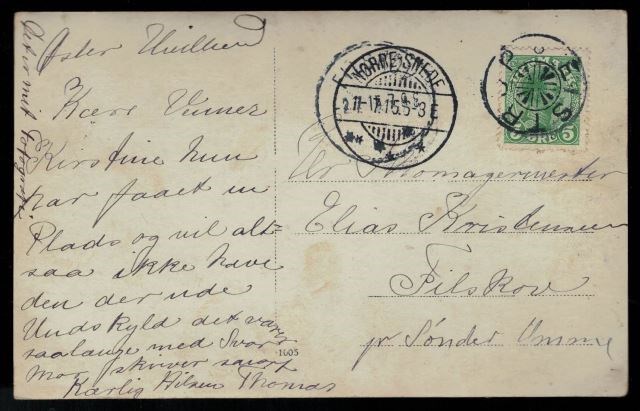 Øster Nuillund
Kære Venner
Kirstine hun
har faaet en
Plads og vil alt-
saa ikke have
den der ude
Undskyld det varer
saalænge med Svar
Mor skriver snart
Kærlig Hilsen Thomas
NØRRE-SNEDE
5 ØRE 5
Hr Skomagermester
Elias Kristensen
Filskov
pr Sønder Omme
1605